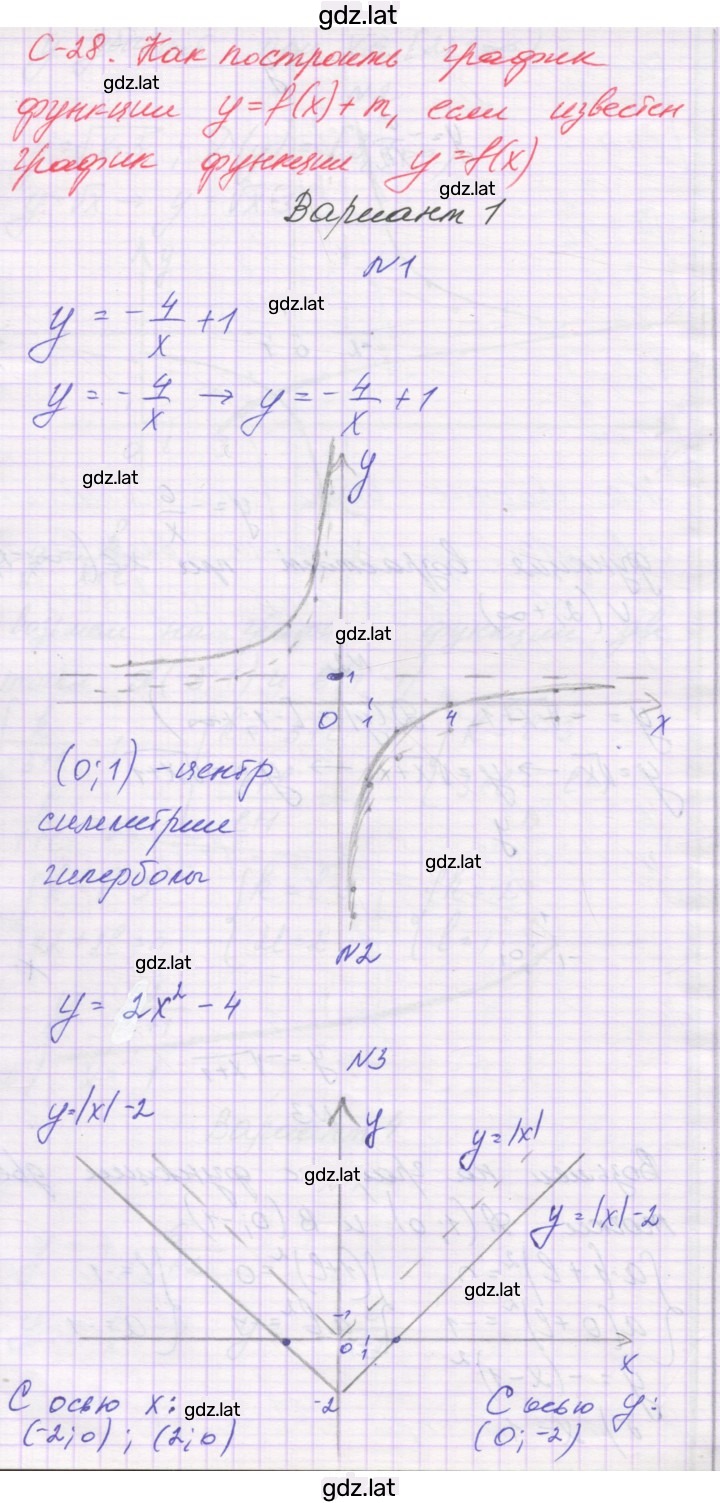 gdz.lat
С-28. Как построить график
gdz.lat
функции y=f(x)+m, если известен
график функции y=f(x)
gdz.lat
Вариант 1
N1
gdz.lat
y = - 4/x + 1
y = - 4/x → y = - 4/x + 1
y
gdz.lat
gdz.lat
1
0 1 4 x
(0;1) - центр
симметрии
гиперболы
gdz.lat
N2
gdz.lat
y = 2x² - 4
N3
y=|x|-2
y
y=|x|
gdz.lat
y=|x|-2
gdz.lat
1
0 1 x
-2
С осью x:
gdz.lat
(-2;0); (2;0)
С осью y:
(0;-2)
gdz.lat